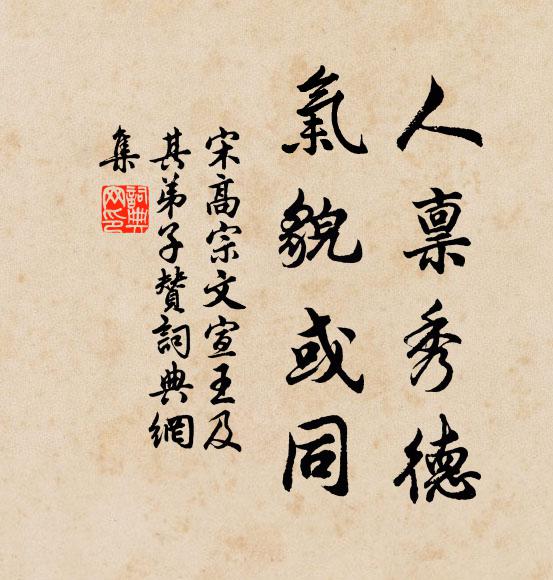 人禀秀德
氣貌或同
宋高宗文宣王及
其弟子贊詞典網
集
詞典
网印